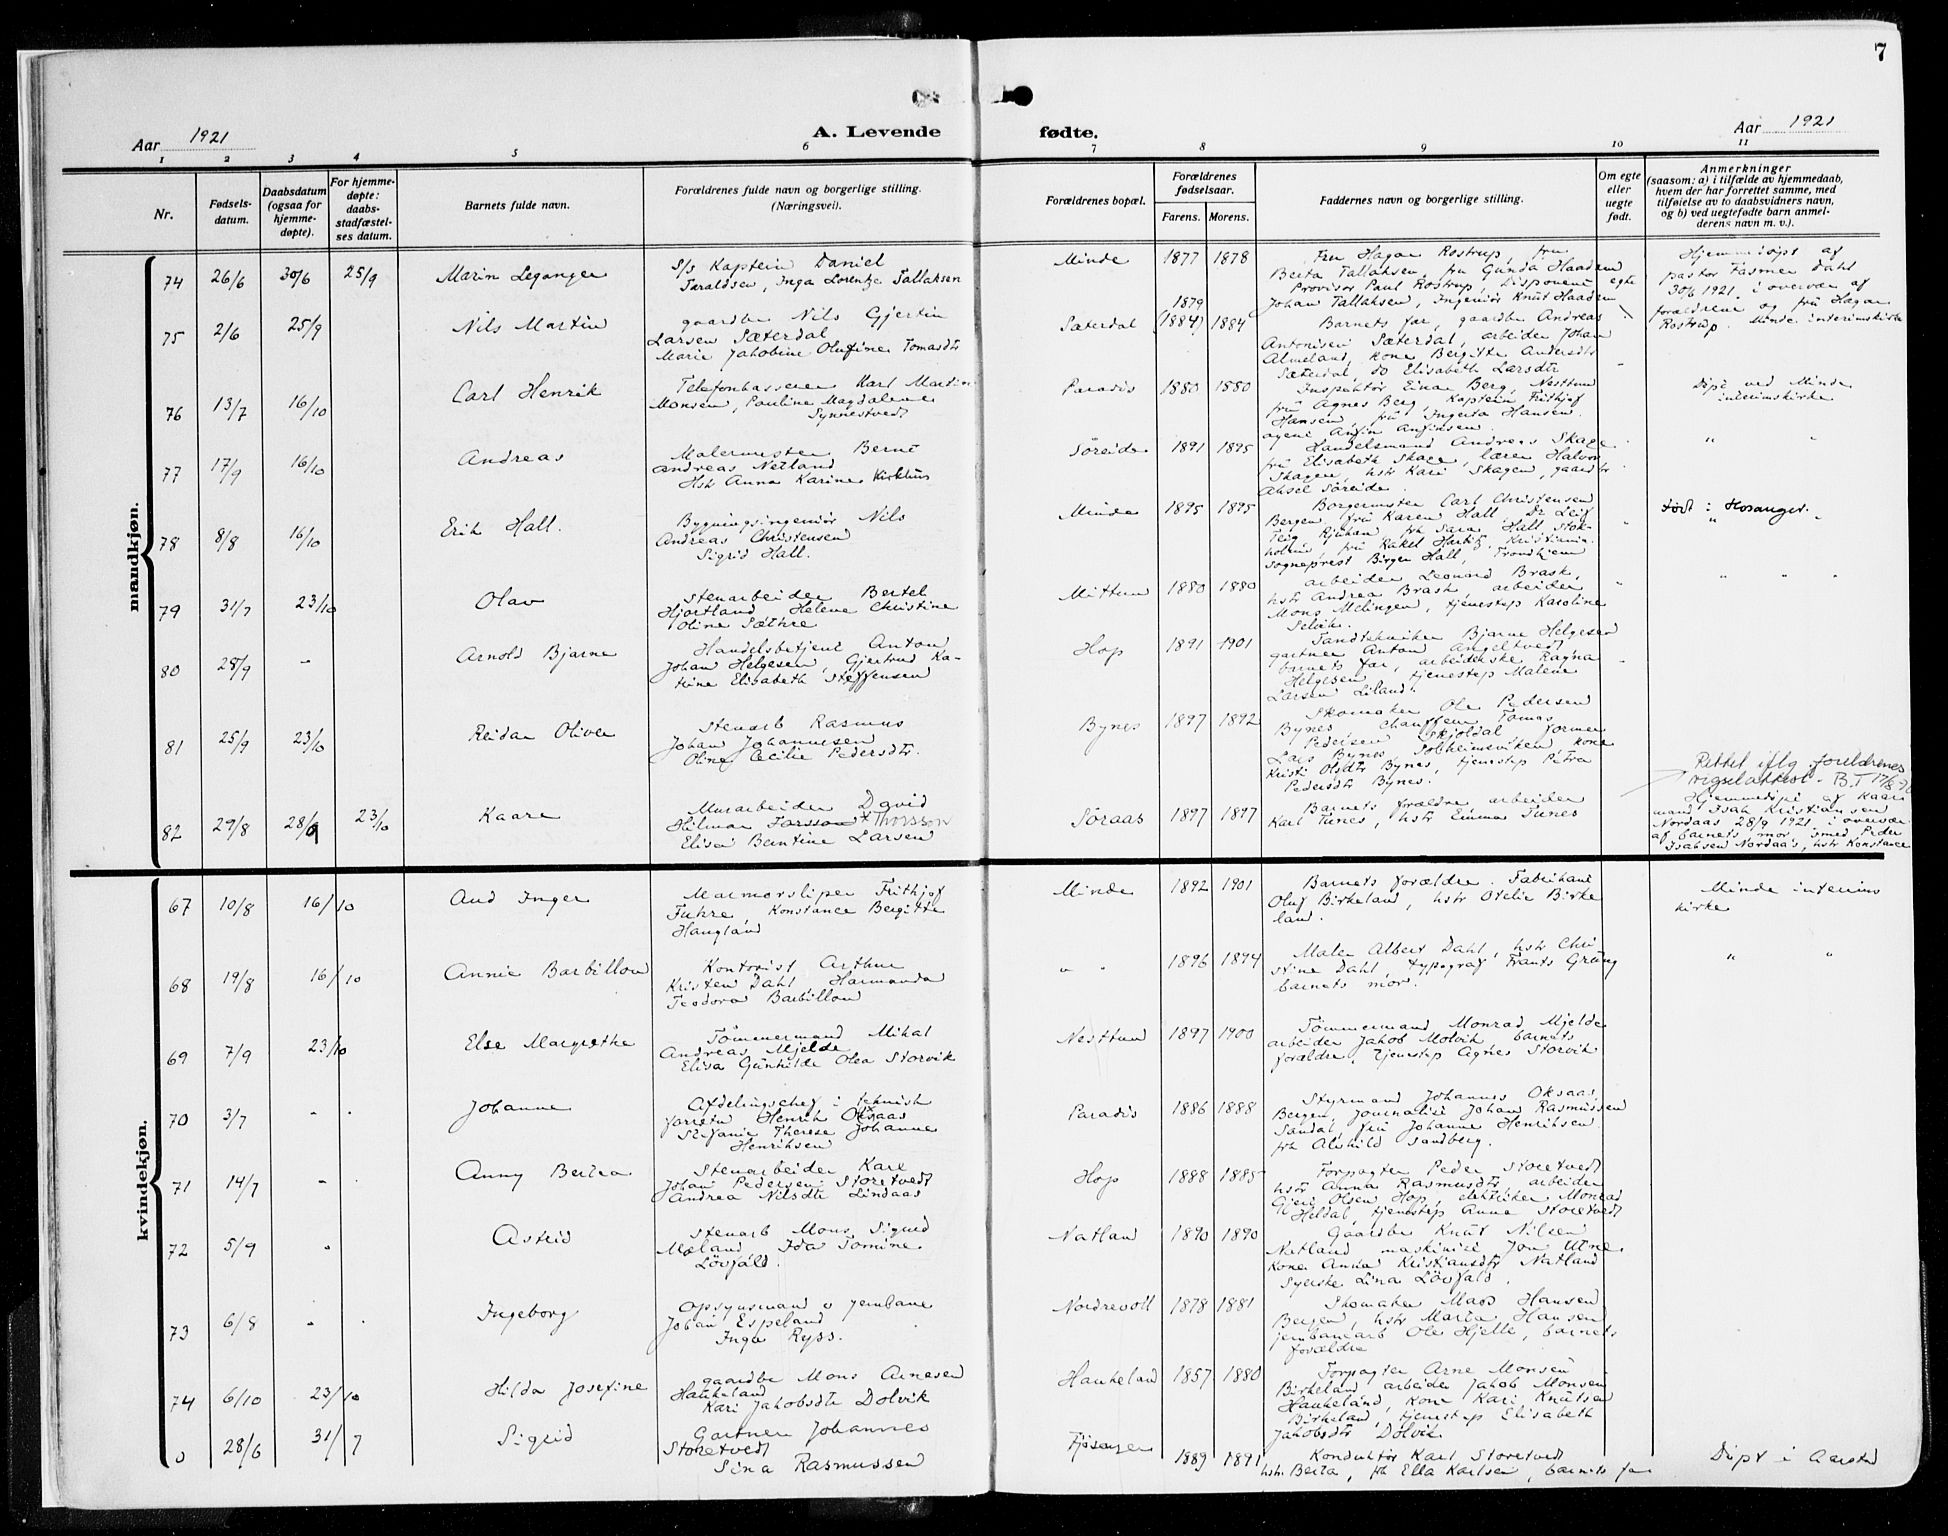 7
Aar 1921
A. Levende
fødte.
Aar 1921
1 2 3 4 5 6 7 8 9 10 11
Nr.
Fødsels-
datum.
Daabsdatum
(ogsaa for
hjemme-
døpte).
For hjemme-
døpte:
daabs-
stadfæstel-
ses datum.
Barnets fulde navn.
Forældrenes fulde navn og borgerlige stilling.
(Næringsvei).
Forældrenes bopæl.
Forældrenes
fødselsaar.
Farens. Morens.
Faddernes navn og borgerlige stilling.
Om egte
eller
uegte
født.
Anmerkninger
(saasom: a) i tilfælde av hjemmedaab,
hvem der har forrettet samme, med
tilføielse av to daabsvidners navn,
og b) ved uegtefødte barn anmel-
derens navn m. v.).
mandkjøn.
74 26/6 30/6 25/9 Marin Leganger
S/s Kaptein Daniel
Taraldsen, Inga Lorentze Tallaksen
Minde 1877 1878
Fru Hagar Rostrup, fru
Berta Tallaksen, fru Gunda Haaden
Provisor Paul Rostrup, Disponent
Johan Tallaksen, Ingeniør Knut Haaden
egte
Hjemmedøpt af
pastor Fasmer Dahl
30/6 1921 i overvær af
forældrene og fru Hagar
Rostrup. Minde interimskirke
75 2/6 25/9 Nils Martin
gaardbr Nils Gjertin
Larsen Sæterdal
Marie Jakobine Olufine Tomasdtr
Sæterdal 1879
(1884) 1884
Barnets far, gaardbr Andreas
Antonisen Sæterdal, arbeider Johan
Almeland, kone Bergitte Andersdtr
Sæterdal, do Elisabeth Larsdtr
76 13/7 16/10 Carl Henrik
Telefonbasserer Karl Martin
Monsen, Pauline Magdalene
Synnestvedt
Paradis 1880 1880
Inspektør Einar Berg, Nesttun
fru Agnes Berg, Kaptein Frithjof
Hansen, fru Ingerta Hansen.
agent Anfin Anfinsen.
Døpt ved Minde
interimskirke
77 17/9 16/10 Andreas
Malermester Bernt
Andreas Netland
Hstr Anna Karine Kirkhus
Søreide 1891 1895
Handelsmand Andreas Skage
fru Elisabeth Skage, lærer Halvor
Skagen, hstr Kari Skagen, gaardbr
Aksel Søreide.
" "
78 8/8 16/10 Erik Hall.
Bygningsingeniør Nils
Andreas Christensen
Sigrid Hall.
Minde 1895 1895
Borgermster Carl Christensen
Bergen, fru Karen Hall, Dr Leif
Teig, Rjukan, frk Sara Hall, Stok-
holm, fru Rakel Harbitz, Kristiania.
Sogneprest Birger Hall, Trondhjem
Født i Hosanger.
" "
79 31/7 23/10 Olav
Stenarbeider Bertel
Hjortland Helene Christine
Oline Sæthre
Mittun 1880 1880
arbeider Leonard Brask,
hstr Andrea Brask arbeider
Mons Melingen, tjenestep Karoline
Selvik.
" " "
80 28/9 - Arnold Bjarne
Handelsbetjent Anton
Johan Helgesen, Gjertrud Ka-
trine Elisabeth Steffensen
Hop 1891 1901
Tandtekniker Bjarne Helgesen
gartner Anton Angeltvedt
barnets far, arbeiderske Ragna
Helgesen, tjenestep Malene
Larsen Liland.
81 25/9 23/10 Reidar Oliver
Stenarb Rasmus
Johan Johannesen
Oline Cecilie Pedersdtr.
Bynes 1897 1892
Skomaker Ole Pedersen
Bynes chauffeur Tomas
Pedersen Skjoldal former
Lars Bynes Solheimsviken kone
Kristi Olsdtr Bynes, tjenestep Petra
Pedersdtr Bynes.
82 29/8 28/9 23/10 Kaare
Murarbeider David
Hilmar Forsson * Thorsson
Elise Berntine Larsen
Søraas 1897 1897
Barnets forældre, arbeider
Karl Tunes, hstr Emma Tunes
Rettet iflg. foreldrenes
vigselattest. B.T 17/8-70
Hjemmedøpt af Kaari
mand Isak Kristiansen
Nordaas 28/9 1921 i overvær
af barnets mor, smed Peder
Isaksen Nordaas, hstr Konstance
kvindekjøn.
67 10/8 16/10 Aud Inger
Marmorsliper Frithjof
Fuhre, Konstance Bergitte
Haugland
Minde 1892 1901
Barnets forældre. Fabrikant
Oluf Birkeland, hstr Otelie Birke
land.
Minde interims
kirke
68 19/8 16/10 Annie Barbillon
Kontorist Arthur
Kristen Dahl Harmanda
Teodora Barbillon
" " 1896 1894
Maler Albert Dahl, hstr Chri
stine Dahl, typograf Frants Grung
barnets mor.
" "
69 7/9 23/10 Else Margrethe
Tømmermand Mikal
Andreas Mjelde
Elisa Gunhilde Olea Storvik
Nesttun 1897 1900
Tømmermand Monrad Mjelde
arbeider Jakob Molvik barnets
forældre, tjenestep Agnes Storvik
70 3/7 - - Johanne
Afdelingschef i teknisk
forretn Henrik Oksaas
Stefanie Therese Johanne
Henriksen
Paradis 1886 1888
Styrmand Johannes Oksaas,
Bergen, journalist Johan Rasmussen
Sandal, fru Johanne Henriksen.
frk Alshild Sandberg.
71 14/7 - - Anny Berta
Stenarbeider Karl
Johan Pedersen Storetvedt
Andrea Nilsdtr Lindaas
Hop 1888 1885
Forpagter Peder Storetvedt
hstr Anna Rasmusdtr, arbeider
Gjert Olsen Hop, elektriker Monrad
Heldal, tjenestep Anna Storetvedt
72 5/9 - Astrid
Stenarb Mons Sigurd
Mæland Ida Tomine
Løvfald.
Natland 1890 1890
Gaardbr Knut Nilsen
Natland maskinist Jon Utne
Kone Anna Kristiansdtr Natland
Syerske Lina Løvfald.
73 6/8 - - Ingeborg
Opsynsmand v jernbane
Johan Espeland
Inga Ryss.
Nordrevoll 1878 1881
Skomaker Mads Hansen
Bergen, hstr Marta Hansen
jernbanearb Ole Hjelle, barnets
forældre
74 6/10 23/10 Hilda Josefine
gaardbr Mons Arnesen
Haukeland
Kari Jakobsdtr Dolvik
Haukeland 1857 1880
Forpagter Arne Monsen
Birkeland, arbeider Jakob Monsen
Haukeland, Kone Kari Knutsen
Birkeland, tjenestep Elisabeth
Jakobsdtr Dolvik.
0 28/6 31/7 Sigrid
Gartner Johannes
Storetvedt
Sina Rasmussen
Fjøsanger 1889 1891
Konduktør Karl Storetvedt
hstr. Berta, frk Ella Karlsen, barnets far
Døpt i Aarstad